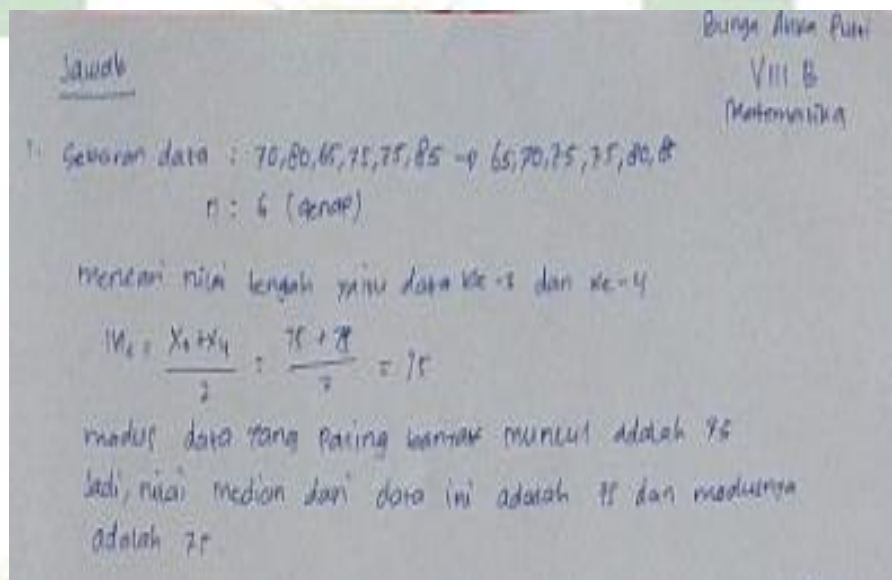 Bunga Putri
VIII B
Matematika
Jawab
1. Sebaran data : 70,80,65,75,75,85 → 65,70,75,75,80,85
n : 6 (genap)
mencari nilai tengah yaitu data ke-3 dan ke-4
Me = X₃+X₄ / 2 = 75 + 75 / 2 = 75
modus data yang paling banyak muncul adalah 75
Jadi, nilai median dari data ini adalah 75 dan modusnya
adalah 75